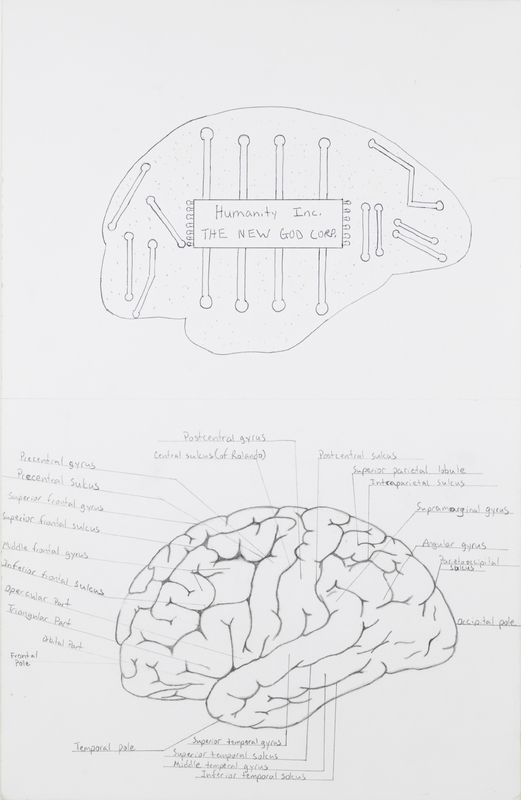 Humanity Inc.
THE NEW GOD CORP.
Postcentral gyrus
Central sulcus (of Rolando)
Precentral gyrus
Precentral Sulcus
Superior frontal gyrus
Superior frontal sulcus
Middle frontal gyrus
Inferior frontal sulcus
Opercular Part
Triangular Part
Orbital Part
Frontal
Pole
Postcentral sulcus
Superior parietal lobule
Intraparietal sulcus
Supramarginal gyrus
Angular gyrus
Parietooccipital
sulcus
Occipital pole
Temporal pole
Superior temporal gyrus
Superior temporal sulcus
Middle temporal gyrus
Inferior temporal sulcus